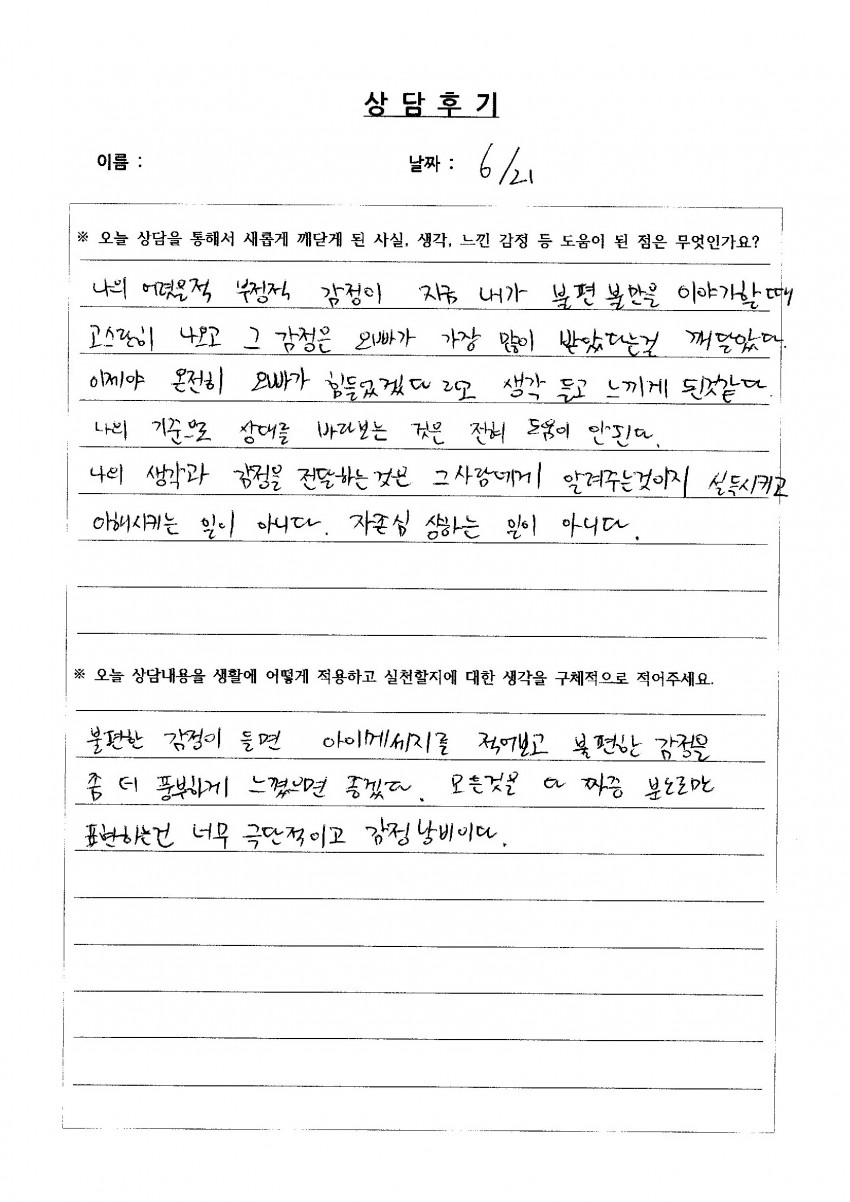 상 담 후 기
이름 :
날짜 : 6/21
※ 오늘 상담을 통해서 새롭게 깨닫게 된 사실, 생각, 느낀 감정 등 도움이 된 점은 무엇인가요?
나의 어렸을적 부정적 감정이 지금 내가 불편 불만을 이야기할 때
고스란히 나오고 그 감정은 오빠가 가장 많이 받았다는걸 깨달았다.
이제야 온전히 오빠가 힘들었겠다 라고 생각 들고 느끼게 된것같다.
나의 기준으로 상대를 바라보는 것은 전혀 도움이 안된다.
나의 생각과 감정을 전달하는것은 그사람에게 알려주는것이지 설득시키고
이해시키는 일이 아니다. 자존심 상하는 일이 아니다.
※ 오늘 상담내용을 생활에 어떻게 적용하고 실천할지에 대한 생각을 구체적으로 적어주세요.
불편한 감정이 들면 아이메세지를 적어보고 불편한 감정을
좀 더 풍부하게 느꼈으면 좋겠다. 모든것을 다 짜증 분노로만
표현하는건 너무 극단적이고 감정낭비이다.